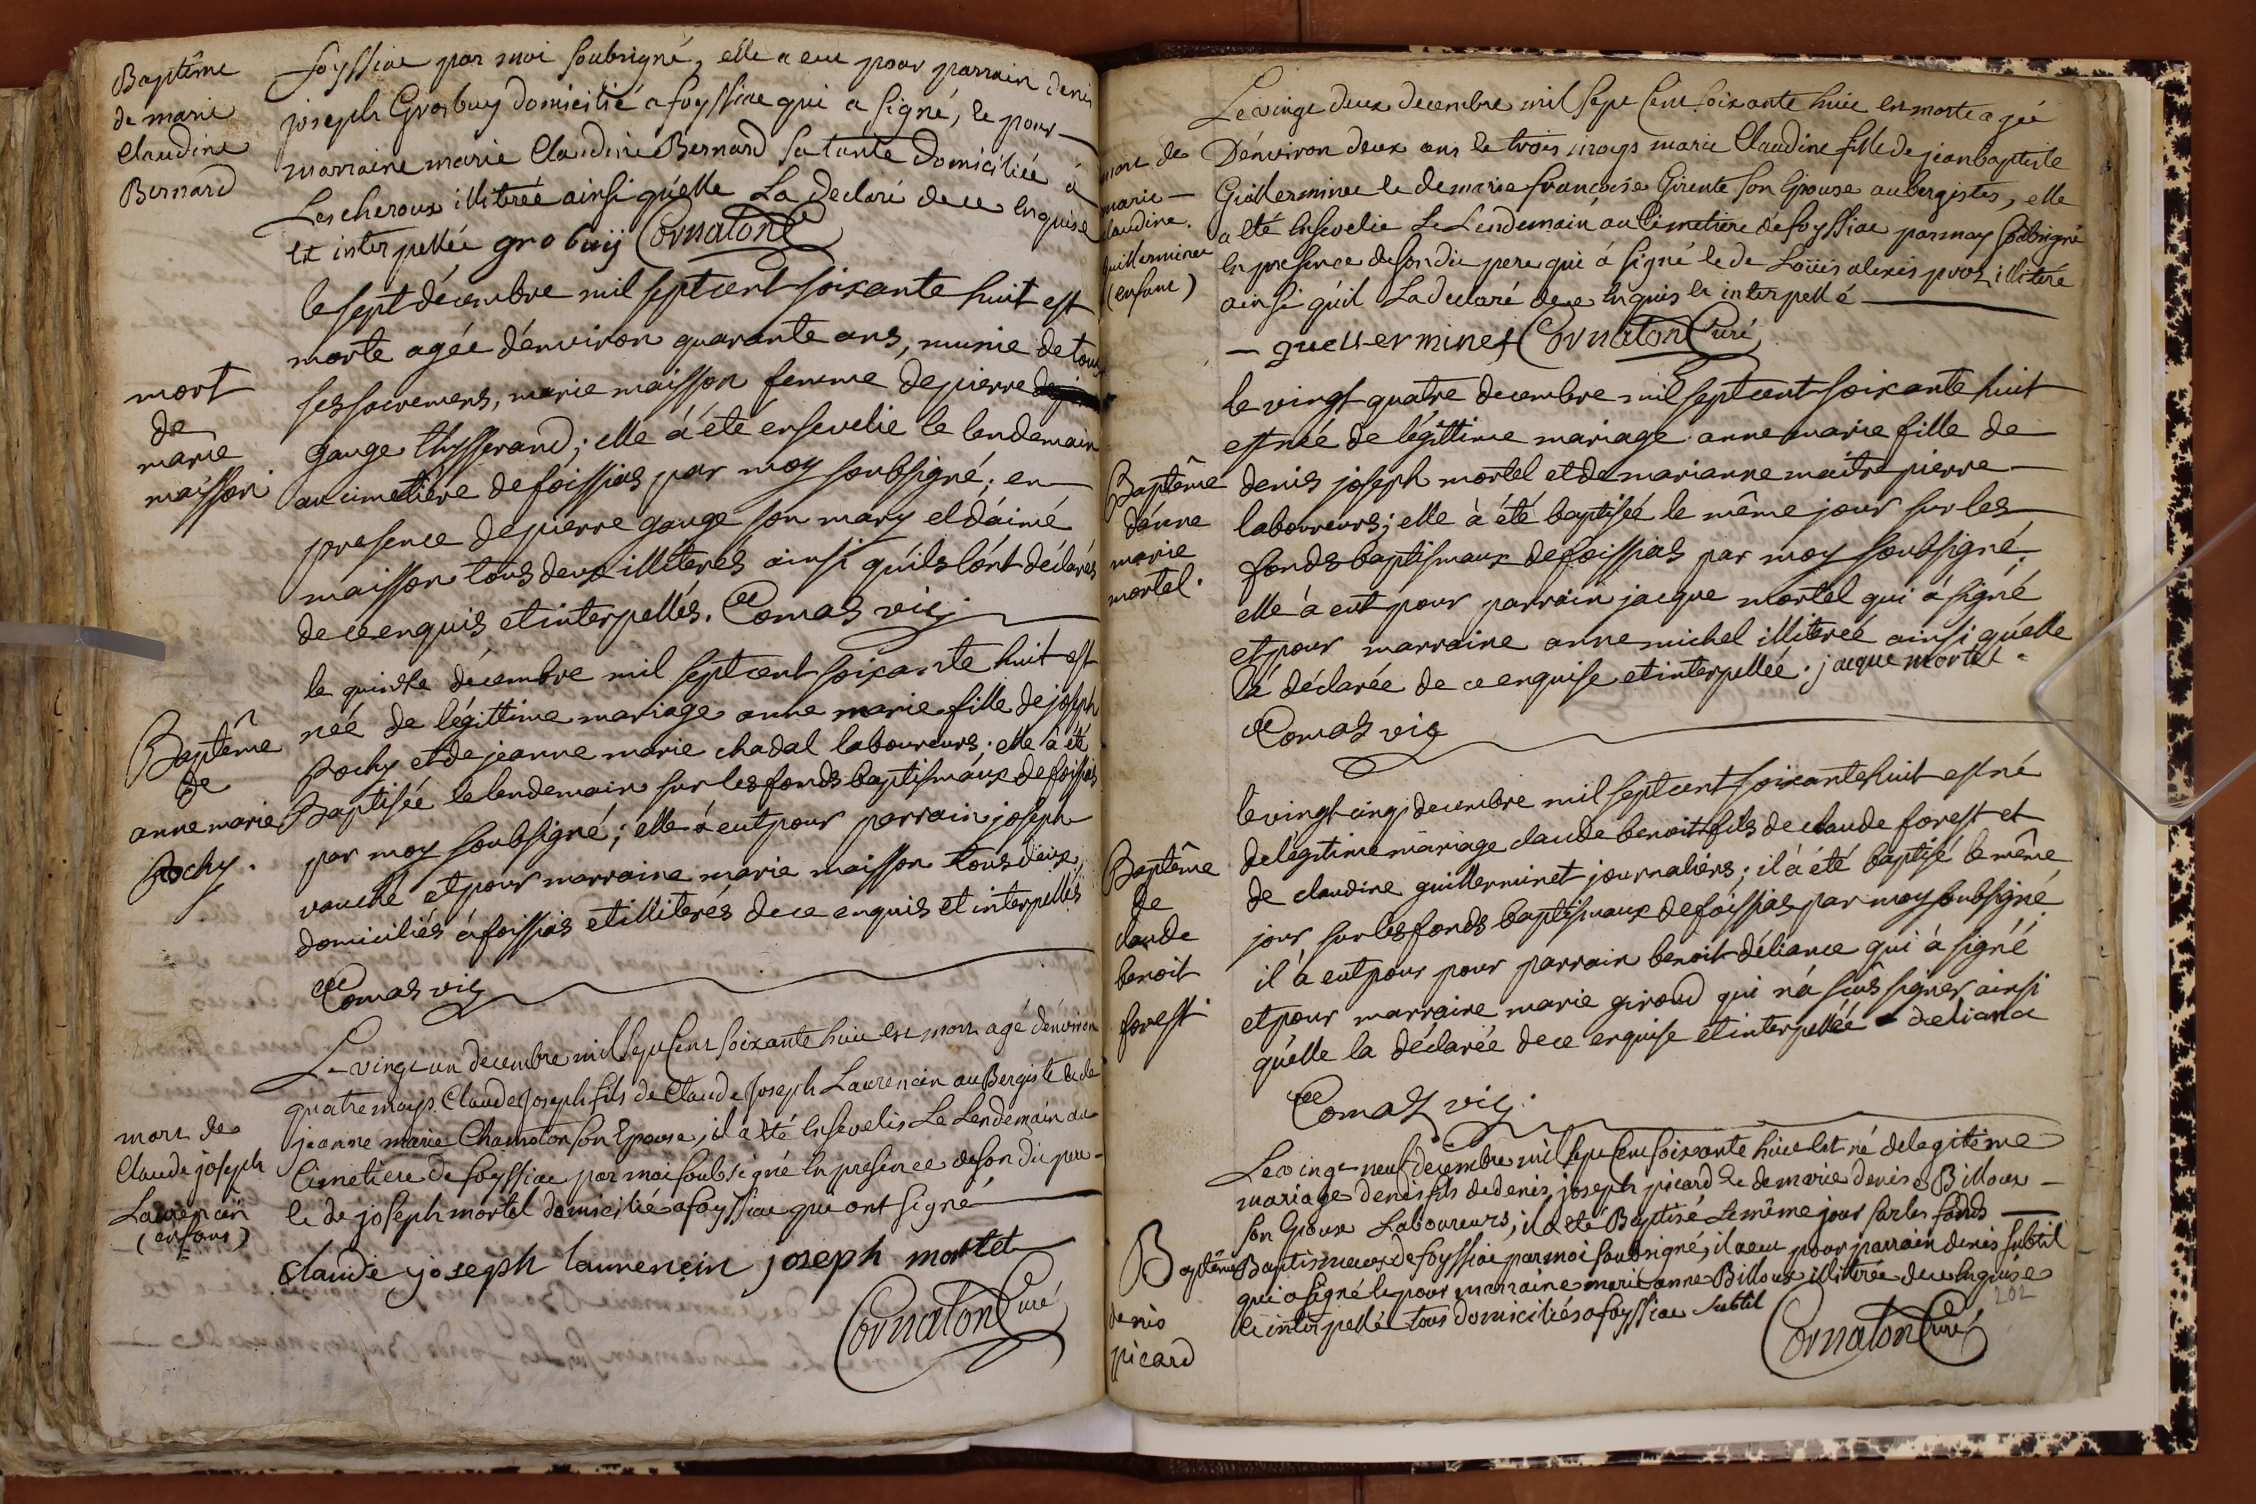 Baptême
de marie
claudine
Bernard
foyssiac par moi soubsigné, elle a eue pour parrain denis
joseph Grosbuy domicilié a foyssiac qui a signé, et pour
marraine marie Claudine Bernard sa tante domiciliée à
Lescheroux illiterée ainsi qu'elle La declaré de ce enquise
et interpellée grobuij Cornaton C
mort
de
marie
maisson
le sept décembre mil sept cent soixante huit est
morte agée d'environ quarante ans, munie de tous
ses sacremens, marie maisson femme de pierre
gauge thysserand; elle à été ensevelie le lendemain
au cimetière de foissias par moy soubsigné; en
presence de pierre gauge son mary et d'aimé
maisson tous deux illiterés ainsi qu'ils l'ont déclarés
de ce enquis et interpellés. Comas vic
Baptême
de
anne marie
Pochy.
le quinze décembre mil sept cent soixante huit est
née de légittime mariage anne marie fille de joseph
Pochy et de jeanne marie chadal laboureurs; elle à été
Baptisée le lendemain sur les fonds baptismaux de foissias
par moy soubsigné; elle à eut pour parrain joseph
vauché et pour marraine marie maisson tous deux
domiciliés à foissias et illiterés de ce enquis et interpellés
Comas vic
mort de
Claude joseph
Laurencin
(enfant)
Le vingt un decembre mil sept Cent soixante huit est mort agé d'environ
quatre moys Claude Joseph fils de Claude Joseph Laurencin auBergiste et de
jeanne marie Chamoton son Epouse, il a été Ensevelis Le Lendemain au
Cimetiere de foyssiac par moi soubsigné En presence de son dit pere
et de joseph mortel domicilié a foyssiac qui ont signé
claude joseph laurencin joseph mortel
Cornaton Curé
mort de
marie
claudine
guillerminet
(enfant)
Le vingt deux decembre mil sept Cent soixante huit est morte agée
D'environ deux ans et trois moys marie Claudine fille de jean baptiste
Guillerminet et de marie francoise Girente son Epouse aubergistes, elle
a été Ensevelie Le Lendemain au Cimetiere de foyssiac par moy soubsigné
En presence de son dit pere qui à signé et de Loüis alexis proz illiteré
ainsi qu'il La declaré de ce Enquis et interpellé
guillerminet Cornaton Curé
Baptême
d'anne
marie
mortel.
le vingt quatre decembre mil sept cent soixante huit
est née de légittime mariage anne marie fille de
denis joseph mortel et de marianne maitrepierre
laboureurs; elle à été baptisée le même jour sur les
fonds baptismaux de foissias par moy soubsigné.
elle à eut pour parrain jacque mortel qui à signé
et pour marraine anne michel illiterée ainsi qu'elle
l'à déclarée de ce enquise et interpellée. jacque mortel
Comas vic
Baptême
de
claude
benoit
forest
le vingt cinq decembre mil sept cent soixante huit est né
de légitime mariage claude benoit fils de claude forest et
de claudine guillerminet journaliers; il à été baptisé le même
jour sur les fonds baptismaux de foissias par moy soubsigné
il à eut pour pour parrain benoit déliance qui à signé
et pour marraine marie giroud qui n'à sçûs signer ainsi
qu'elle la déclarée de ce enquise et interpellée deliance
Comas vic.
Baptême
denis
picard
Le vingt neuf decembre mil sept Cent soixante huit Est né de legitime
mariage denis fils de denis joseph picard et de marie denise Billoux
son Epouse Laboureurs, il a été Baptisé Le même jour sur les fonds
Baptismaux de foyssiac par moi soubsigné, il a eu pour parrain denis subtil
qui a signé et pour marraine marie anne Billoux illiterée de ce Enquise
et interpellé tous domiciliés a foyssiac subtil
202
Cornaton Curé